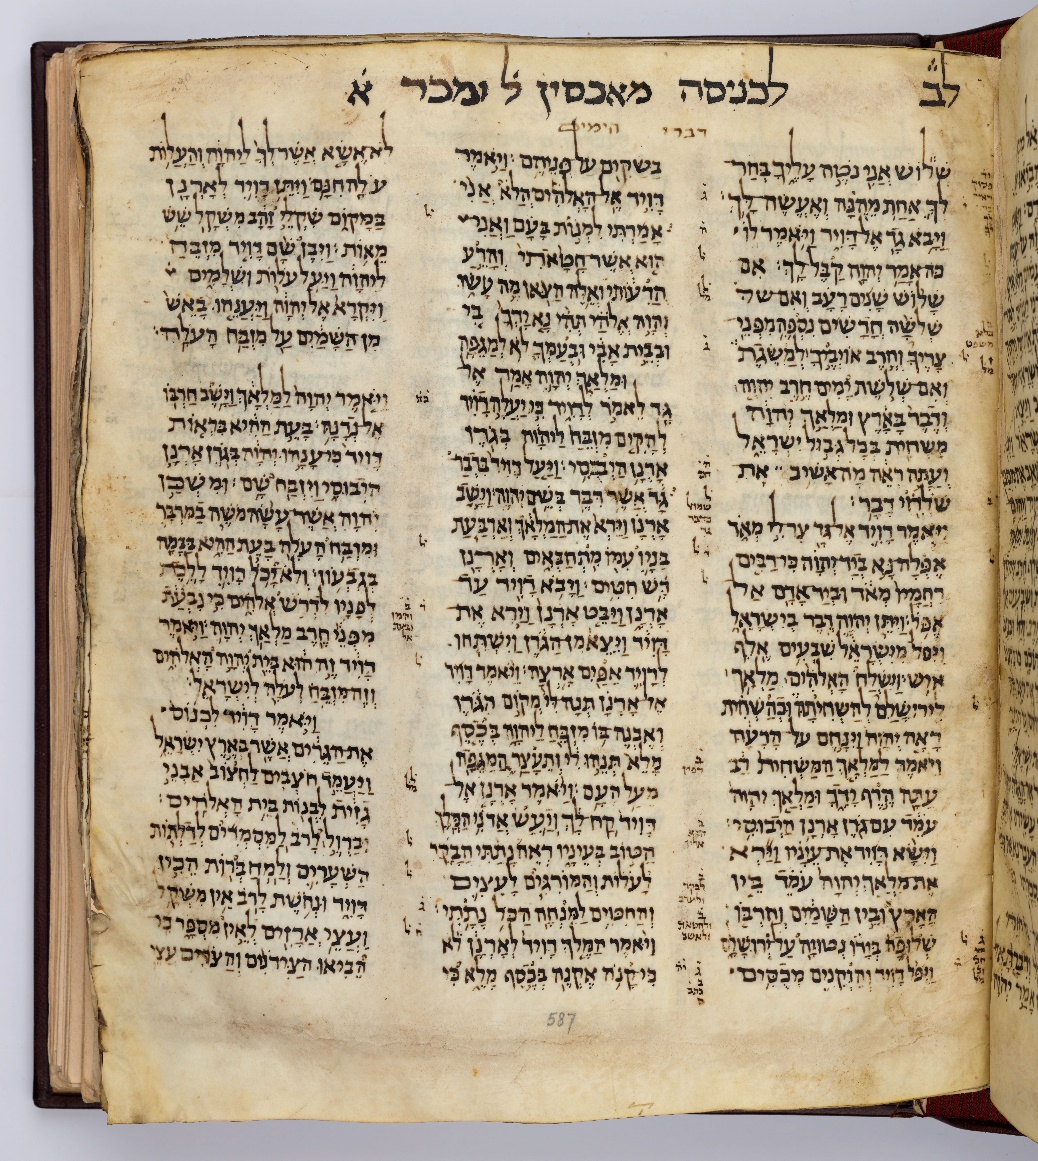 לב
לכניסה מאכסין ל ומכר א
דברי הימים
שלוש אני נטה עליך בחר
לך אחת מהנה ואעשה לך
ויבא גד אל דויד ויאמר לו
כה אמר יהוה קבל לך אם
שלוש שנים רעב ואם
שלשה חדשים נספה מפני
צריך וחרב אויביך למשגת
ואם שלשת ימים חרב יהוה
ודבר בארץ ומלאך יהוה
משחית בכל גבול ישראל
ועתה ראה מה אשיב את
שלחי דבר
ויאמר דויד אל גד צר לי מאד
אפלה נא ביד יהוה כי רבים
רחמיו מאד וביד אדם אל
אפל ויתן יהוה דבר בישראל
ויפל מישראל שבעים אלף
איש וישלח האלהים מלאך
לירושלם להשחיתה וכהשחית
ראה יהוה וינחם על הרעה
ויאמר למלאך המשחית רב
עתה הרף ידך ומלאך יהוה
עמד עם גרן ארנן היבוסי
וישא דויד את עיניו וירא
את מלאך יהוה עמד בין
הארץ ובין השמים וחרבו
שלופה בידו נטויה על ירושלם
ויפל דויד והזקנים מכסים
בשקים על פניהם ויאמר
דויד אל האלהים הלא אני
אמרתי למנות בעם ואני
הוא אשר חטאתי והרע
הרעותי ואלה הצאן מה עשו
יהוה אלהי תהי נא ידך בי
ובבית אבי ובעמך לא למגפה
ומלאך יהוה אמר אל
גד לאמר לדויד כי יעלה דויד
להקים מזבח ליהוה בגרן
ארנן היבוסי ויעל דויד בדבר
גד אשר דבר בשם יהוה וישב
ארנן וירא את המלאך וארבעת
בניו עמו מתחבאים וארנן
דש חטים ויבא דויד עד
ארנן ויבט ארנן וירא את
דויד ויצא מן הגרן וישתחו
לדויד אפים ארצה ויאמר דויד
אל ארנן תנה לי מקום הגרן
ואבנה בו מזבח ליהוה בכסף
מלא תנהו לי ותעצר המגפה
מעל העם ויאמר ארנן אל
דויד קח לך ויעש אדני המלך
הטוב בעיניו ראה נתתי הבקר
לעלות והמורגים לעצים
והחטים למנחה הכל נתתי
ויאמר המלך דויד לארנן לא
כי קנה אקנה בכסף מלא כי
לא אשא אשר לך ליהוה והעלות
עולה חנם ויתן דויד לארנן
במקום שקלי זהב משקל שש
מאות ויבן שם דויד מזבח
ליהוה ויעל עלות ושלמים
ויקרא אל יהוה ויענהו באש
מן השמים על מזבח העלה
ויאמר יהוה למלאך וישב חרבו
אל נדנה בעת ההיא בראות
דויד כי ענהו יהוה בגרן ארנן
היבוסי ויזבח שם ומשכן
יהוה אשר עשה משה במדבר
ומזבח העלה בעת ההיא בבמה
בגבעון ולא יכל דויד ללכת
לפניו לדרש אלהים כי נבעת
מפני חרב מלאך יהוה ויאמר
דויד זה הוא בית יהוה האלהים
וזה מזבח לעלה לישראל
ויאמר דויד לכנוס
את הגרים אשר בארץ ישראל
ויעמד חצבים לחצוב אבני
גזית לבנות בית האלהים
וברזל לרב למסמרים לדלתות
השערים ולמחברות הכין
דויד ונחשת לרב אין משקל
ועצי ארזים לאין מספר כי
הביאו הצידנים והצרים עצי
587